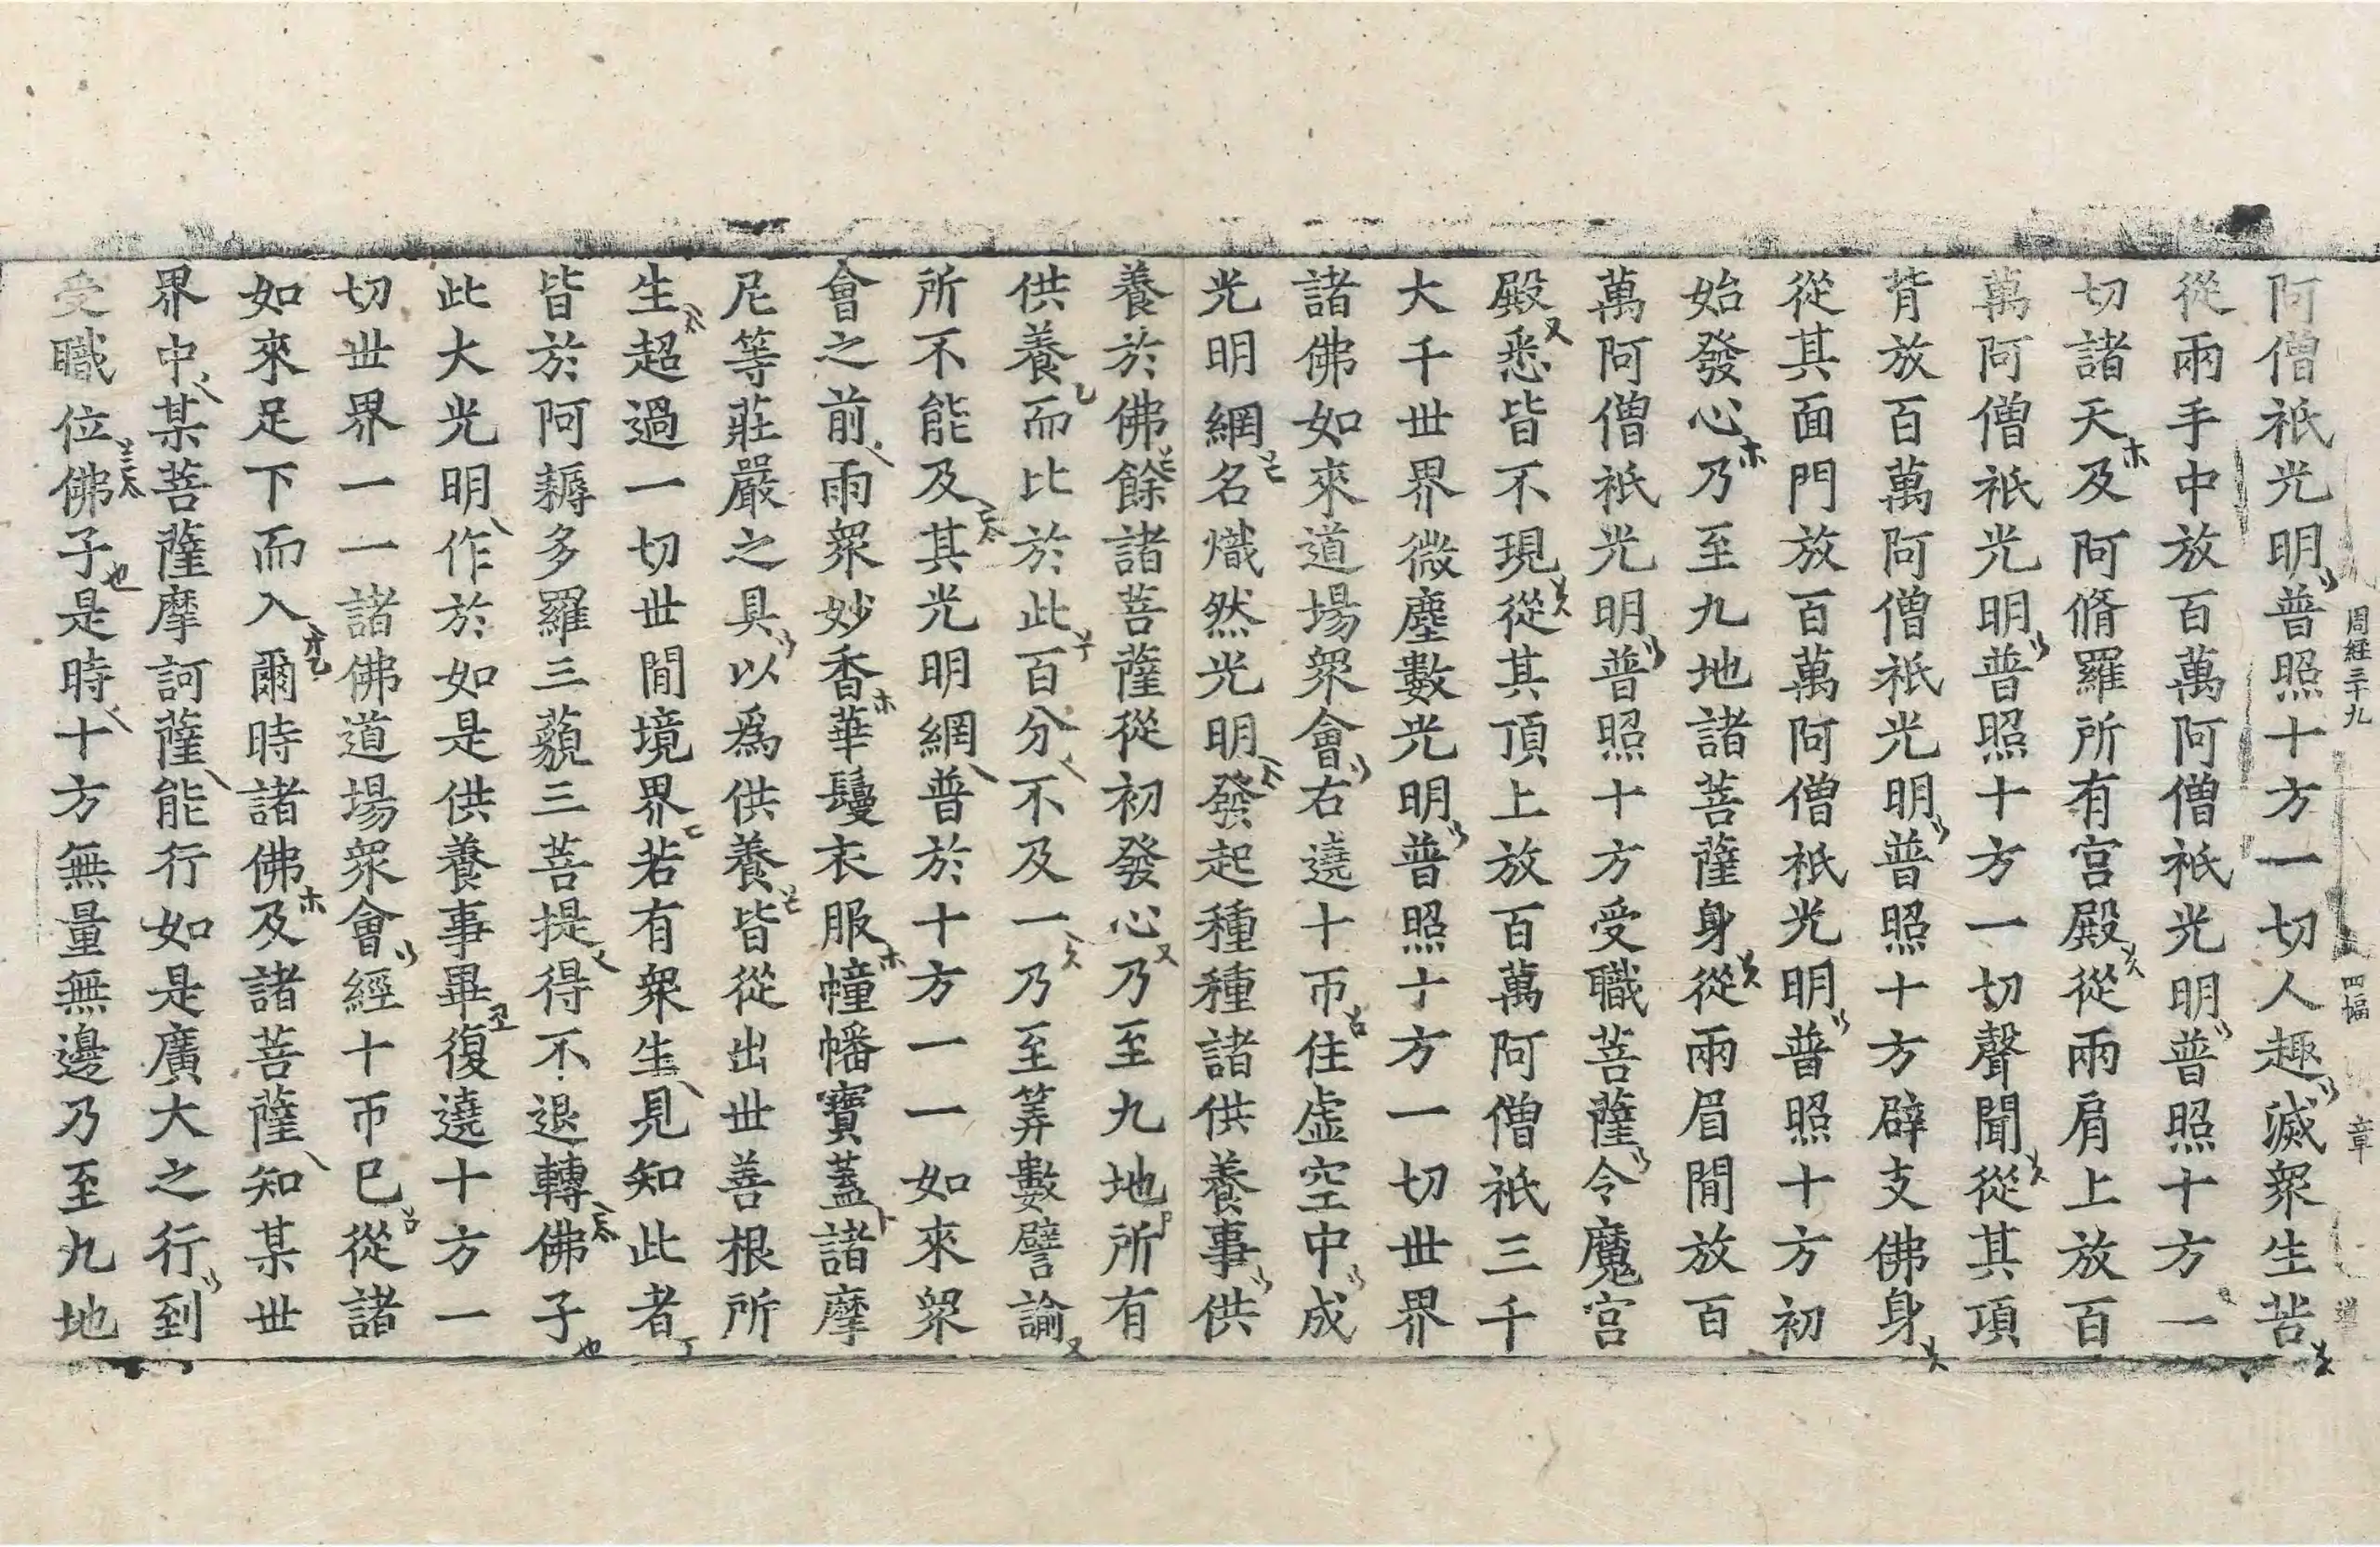 周經三十九 四幅 章
阿僧祇光明普照十方一切人趣滅衆生苦
從兩手中放百萬阿僧祇光明普照十方一
切諸天及阿脩羅所有宫殿從兩肩上放百
萬阿僧祇光明普照十方一切聲聞從其項
背放百萬阿僧祇光明普照十方辟支佛身
從其面門放百萬阿僧祇光明普照十方初
始發心乃至九地諸菩薩身從兩眉間放百
萬阿僧祇光明普照十方受職菩薩令魔宫
殿悉皆不現從其頂上放百萬阿僧祇三千
大千世界微塵數光明普照十方一切世界
諸佛如來道場衆會右遶十帀住虛空中成
光明網名熾然光明發起種種諸供養事供
養於佛餘諸菩薩從初發心乃至九地所有
供養而比於此百分不及一乃至筭數譬諭
所不能及其光明網普於十方一一如來衆
會之前雨衆妙香華鬘衣服幢幡寶蓋諸摩
尼等莊嚴之具以爲供養皆從出世善根所
生超過一切世間境界若有衆生見知此者
皆於阿耨多羅三藐三菩提得不退轉佛子
此大光明作於如是供養事畢復遶十方一
切世界一一諸佛道場衆會經十帀已從諸
如來足下而入爾時諸佛及諸菩薩知某世
界中某菩薩摩訶薩能行如是廣大之行到
受職位佛子是時十方無量無邊乃至九地